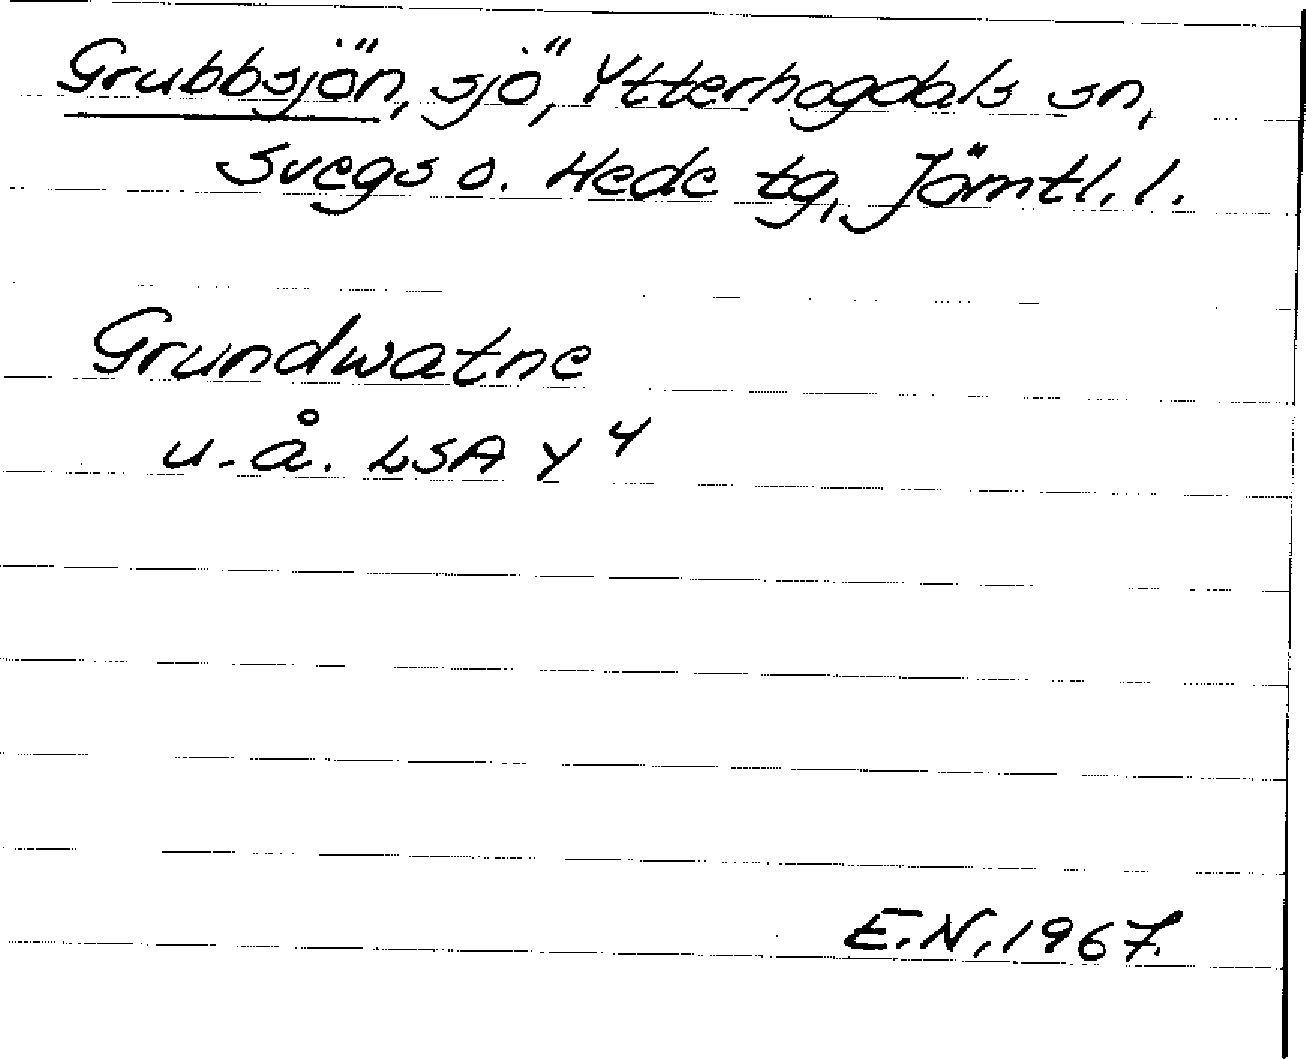 Grubbsjön, sjö, Ytterhogdals sn,
Svegs o. Hede tg, Jämtl. l.
Grundwatne
u. å. LSA Y 4
E.N. 1967.